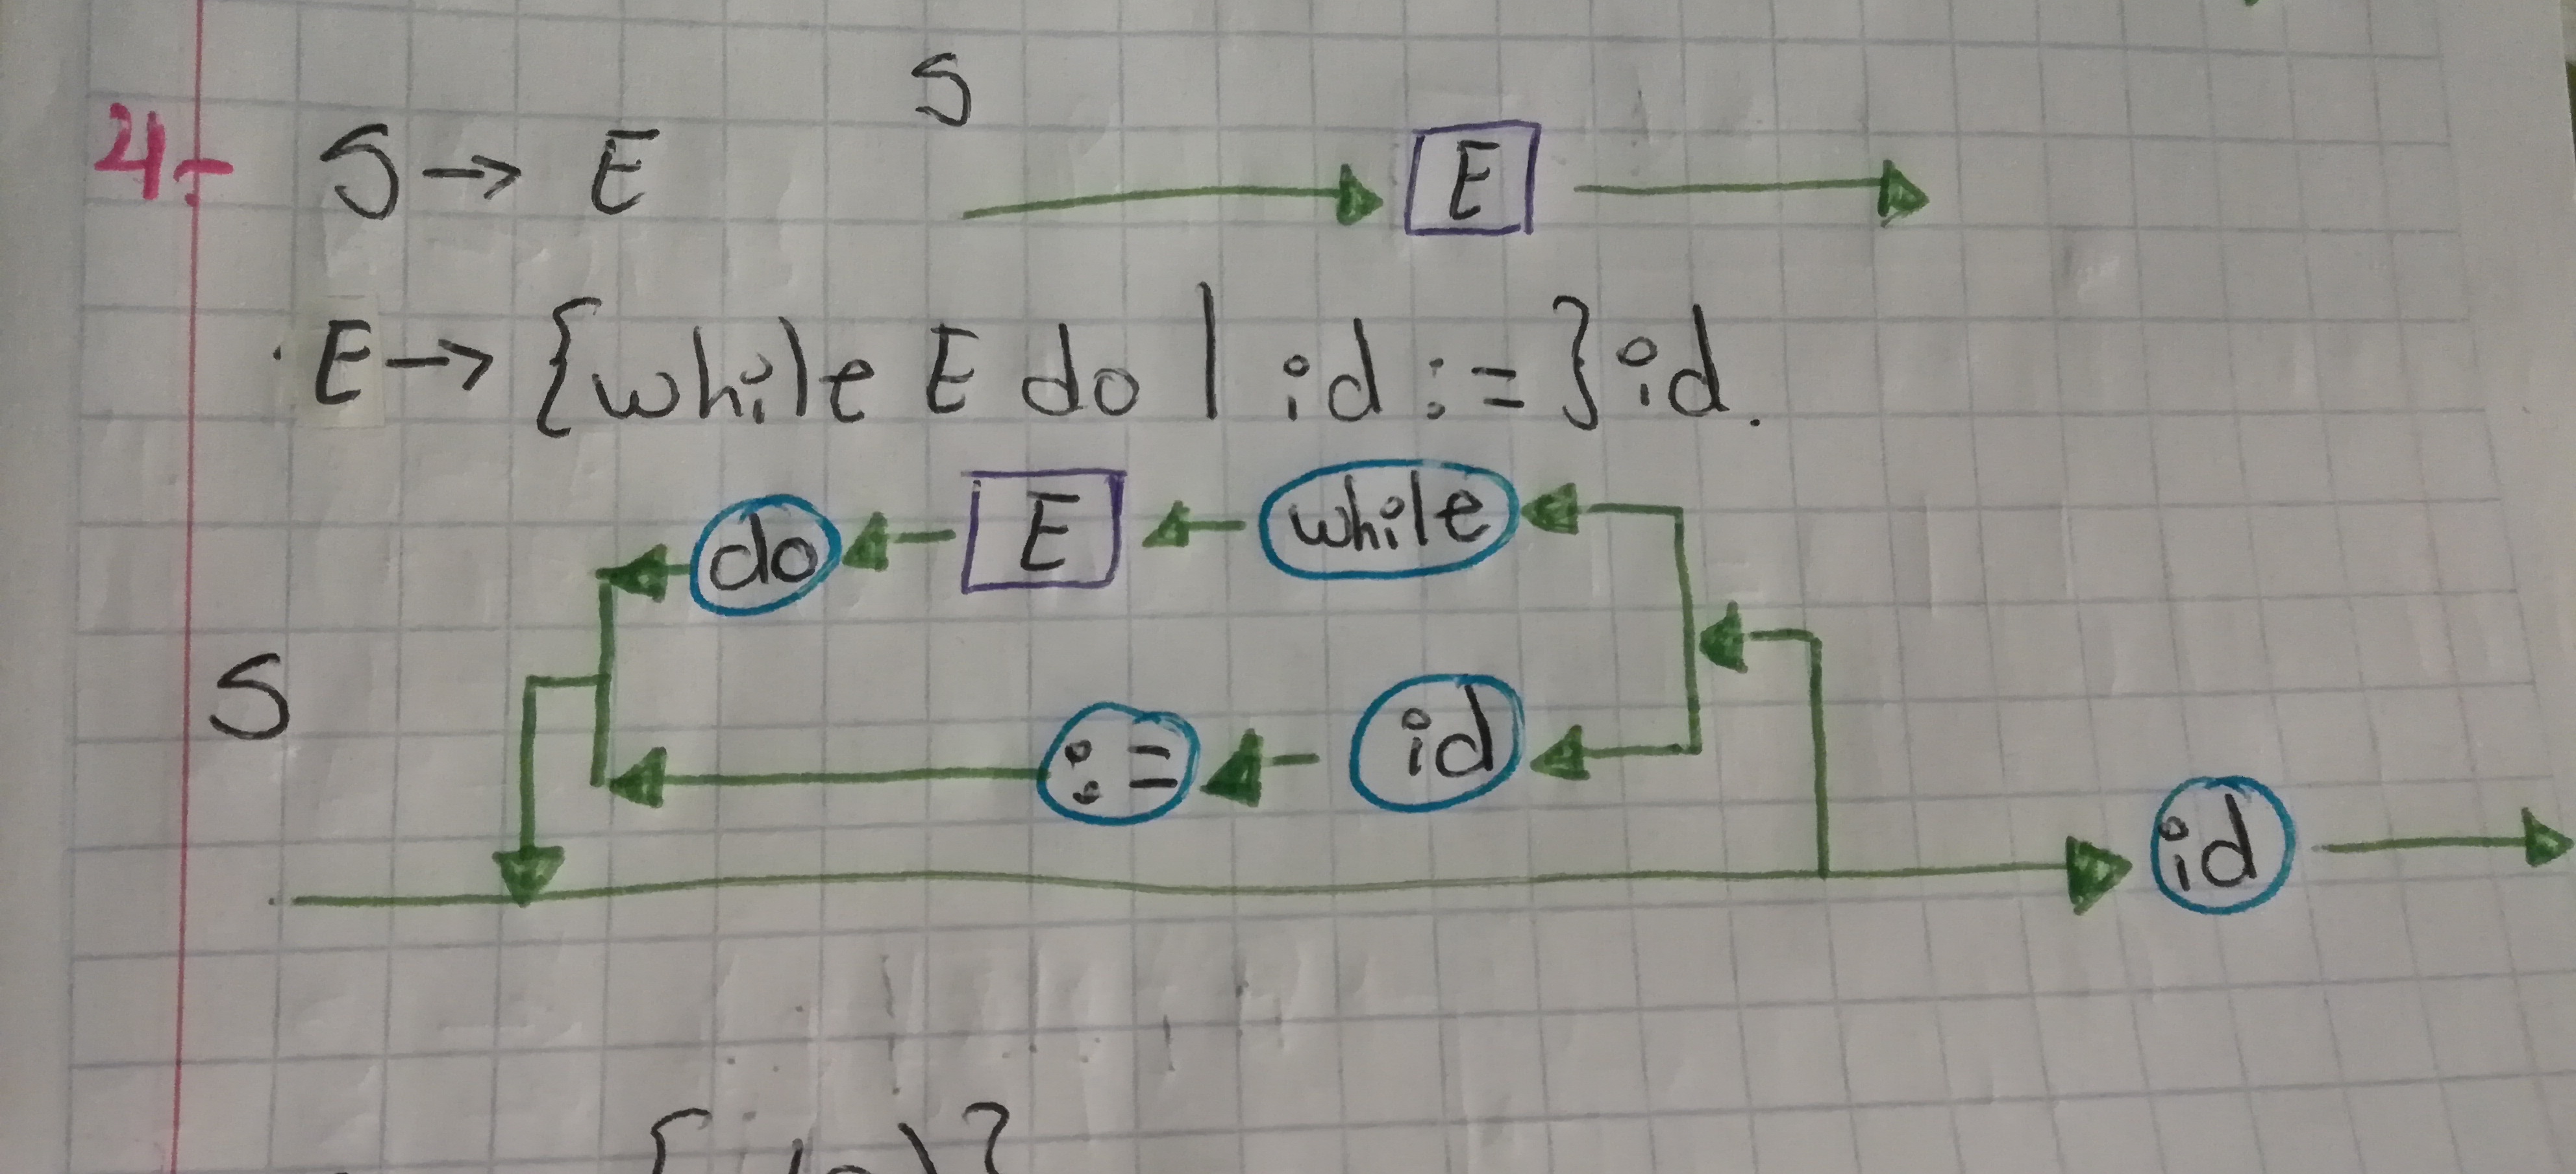 S
4.- S → E
E
E → {while E do | id := } id.
do E while
S
:= id
id